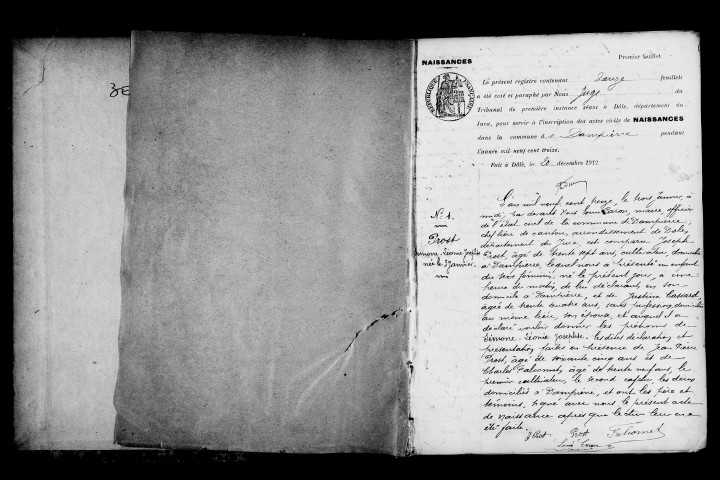 NAISSANCES
Premier feuillet
RÉPUBLIQUE FRANÇAISE
Le présent registre contenant Douze feuillets
a été coté et paraphé par Nous Juge du
Tribunal de première instance séant à Dôle, département du
Jura, pour servir à l'inscription des actes civils de NAISSANCES
dans la commune de Dampierre pendant
l'année mil neuf cent treize.
Fait à Dôle, le 20 décembre 1912
N° 1.
Prost
Simone Léonie Josephte
née le 3 Janvier
L'an mil neuf cent treize, le trois Janvier, à
midi, par devant Nous Louis Caron, maire, officier
de l'état civil de la commune de Dampierre,
chef lieu de canton, arrondissement de Dole,
département du Jura, est comparu Joseph
Prost, âgé de trente sept ans, cultivateur, domicilié
à Dampierre, lequel nous a présenté un enfant
du sexe féminin, né le présent jour, à une
heure du matin, de lui déclarant, en son
domicile à Dampierre, et de Justine Cassard,
âgée de trente quatre ans, sans profession, domiciliée
au même lieu, son épouse, et auquel il a
déclaré vouloir donner les prénoms de
Simone Léonie Josephte. Les dites déclaration et
présentation faites en présence de Jean Pierre
Prost, âgé de soixante cinq ans et de
Charles âgé de trente neuf ans, le
premier cultivateur, le second cafetier, les deux
domiciliés à Dampierre, et ont les père et
témoins, signé avec nous le présent acte
de naissance après que lecture leur en a
été faite.
J Prost Prost
Louis Caron